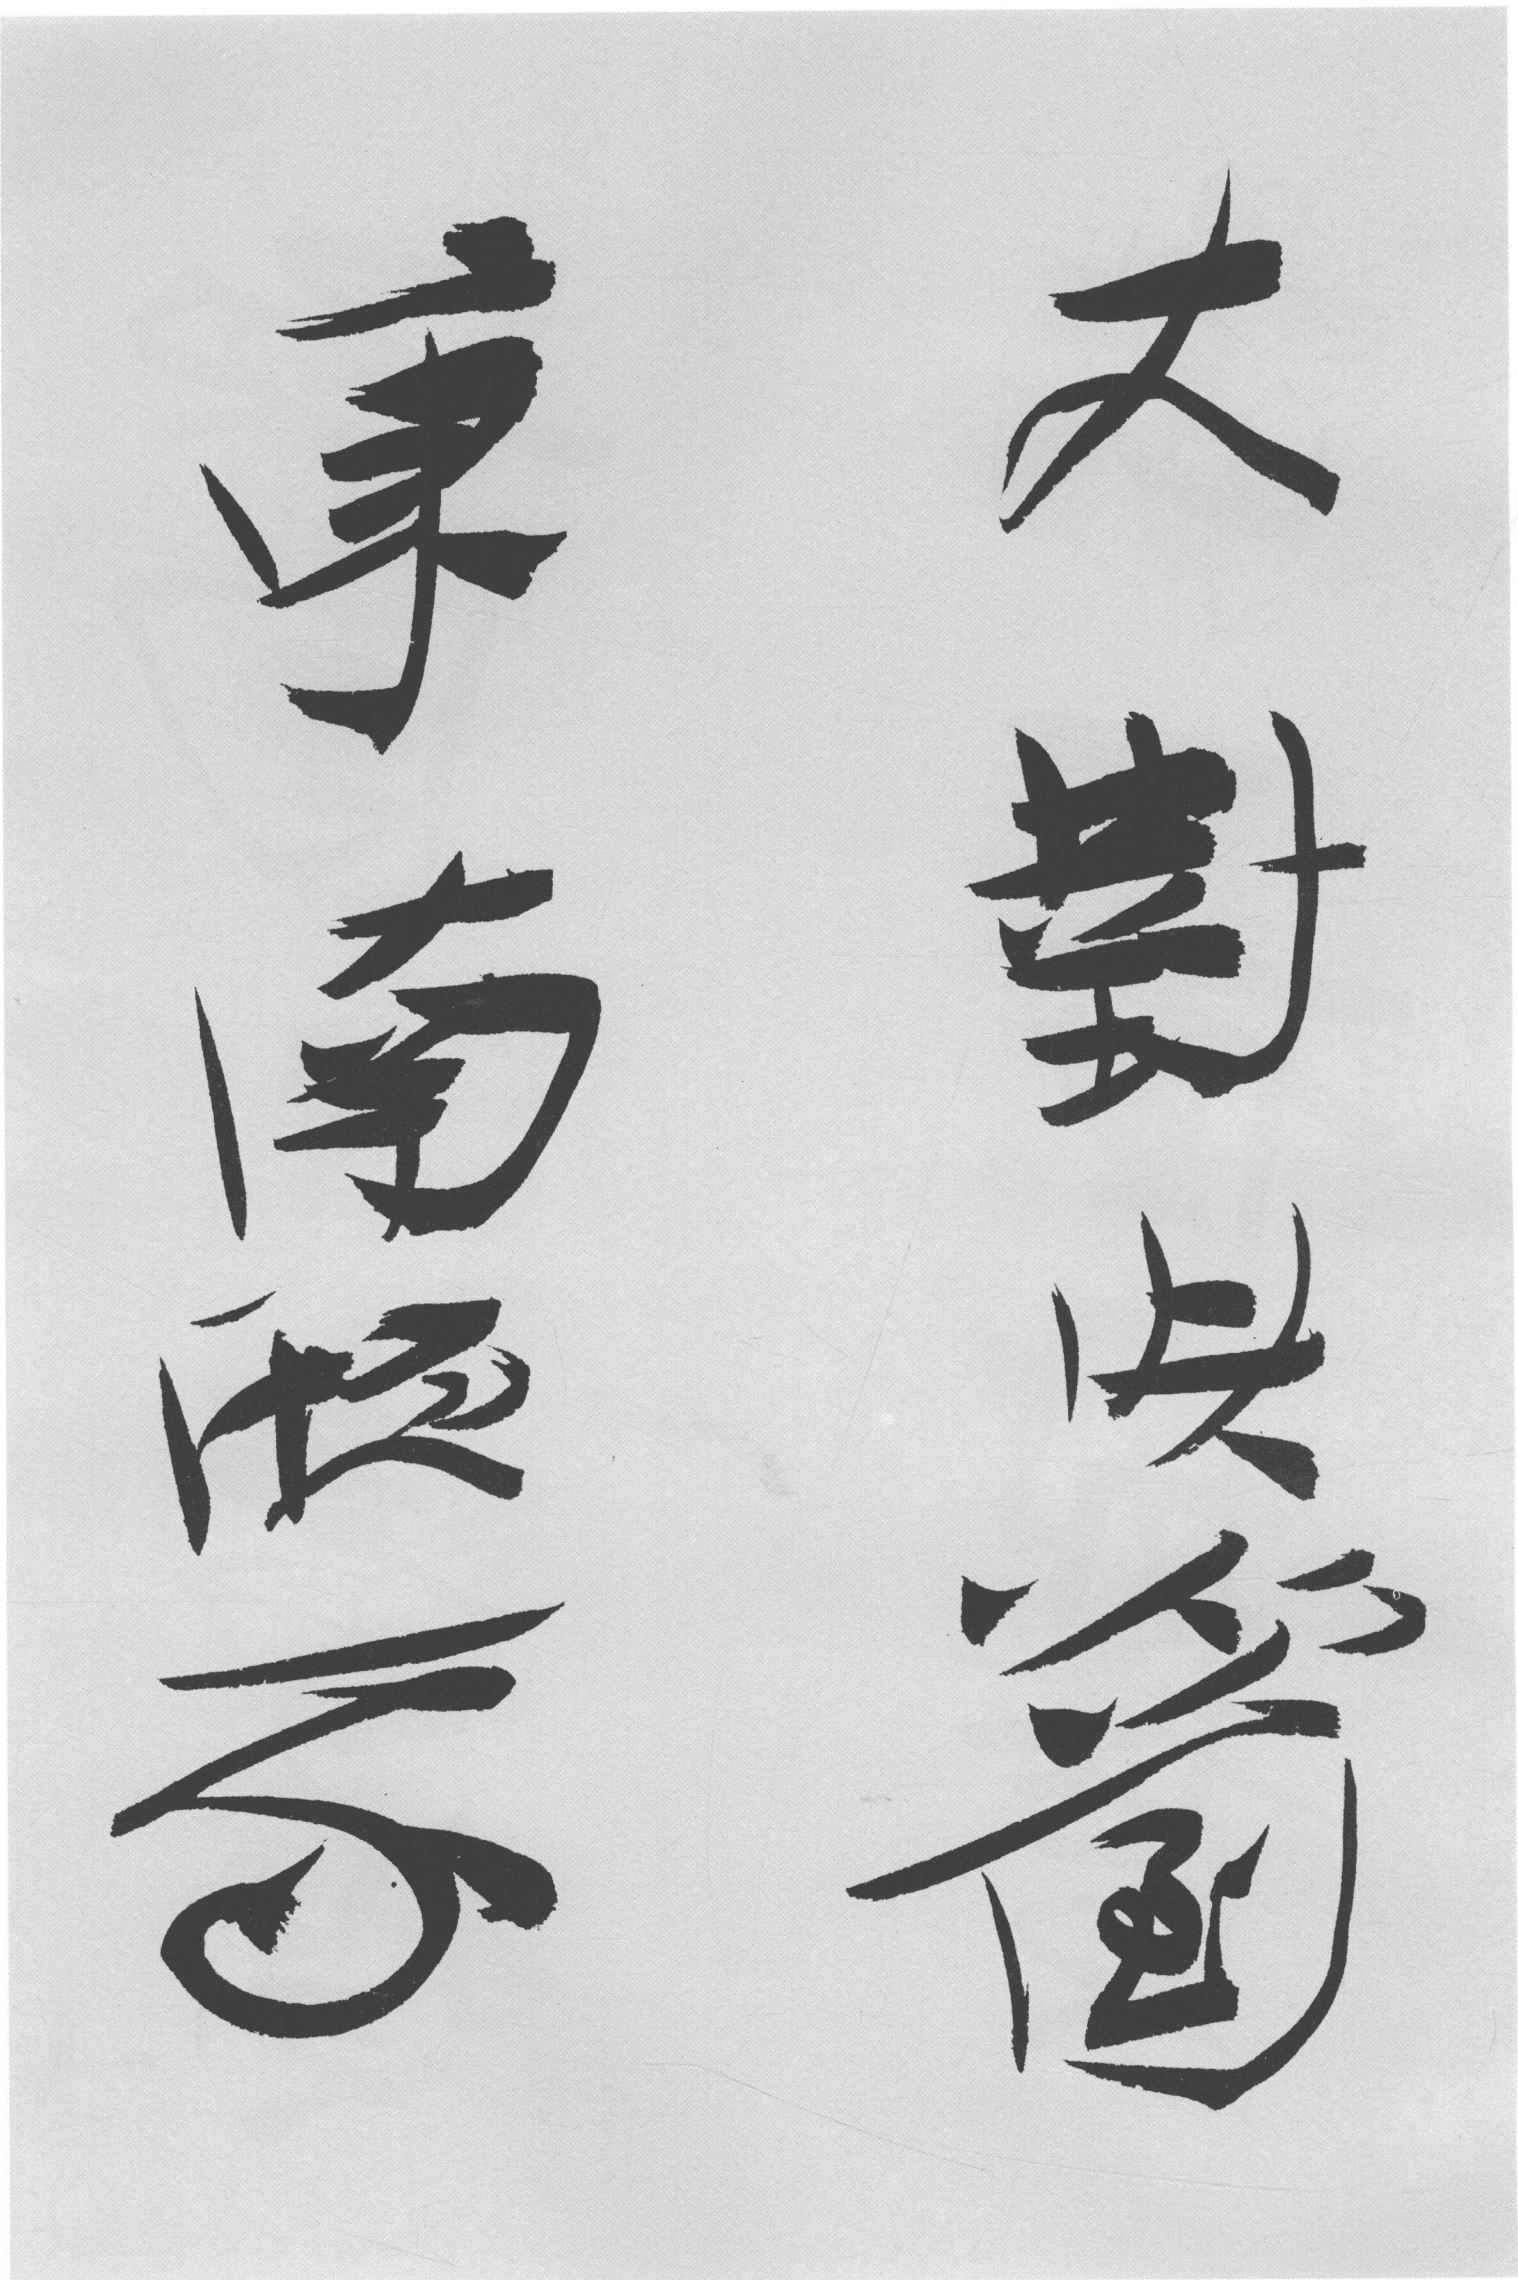 丈對此欲倒
東南傾我